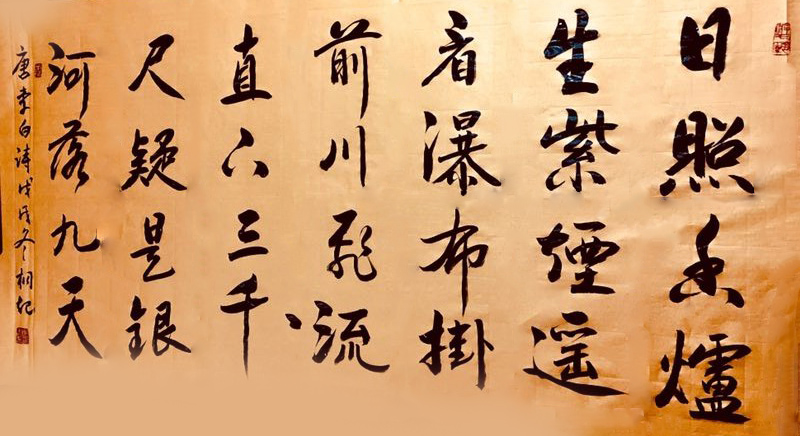 日照香爐
生紫煙遥
看瀑布掛
前川飛流
直下三千
尺疑是銀
河落九天
唐李白詩戊戌冬桐